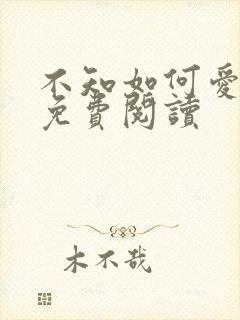 不知如何愛
免費閱讀
木不哉